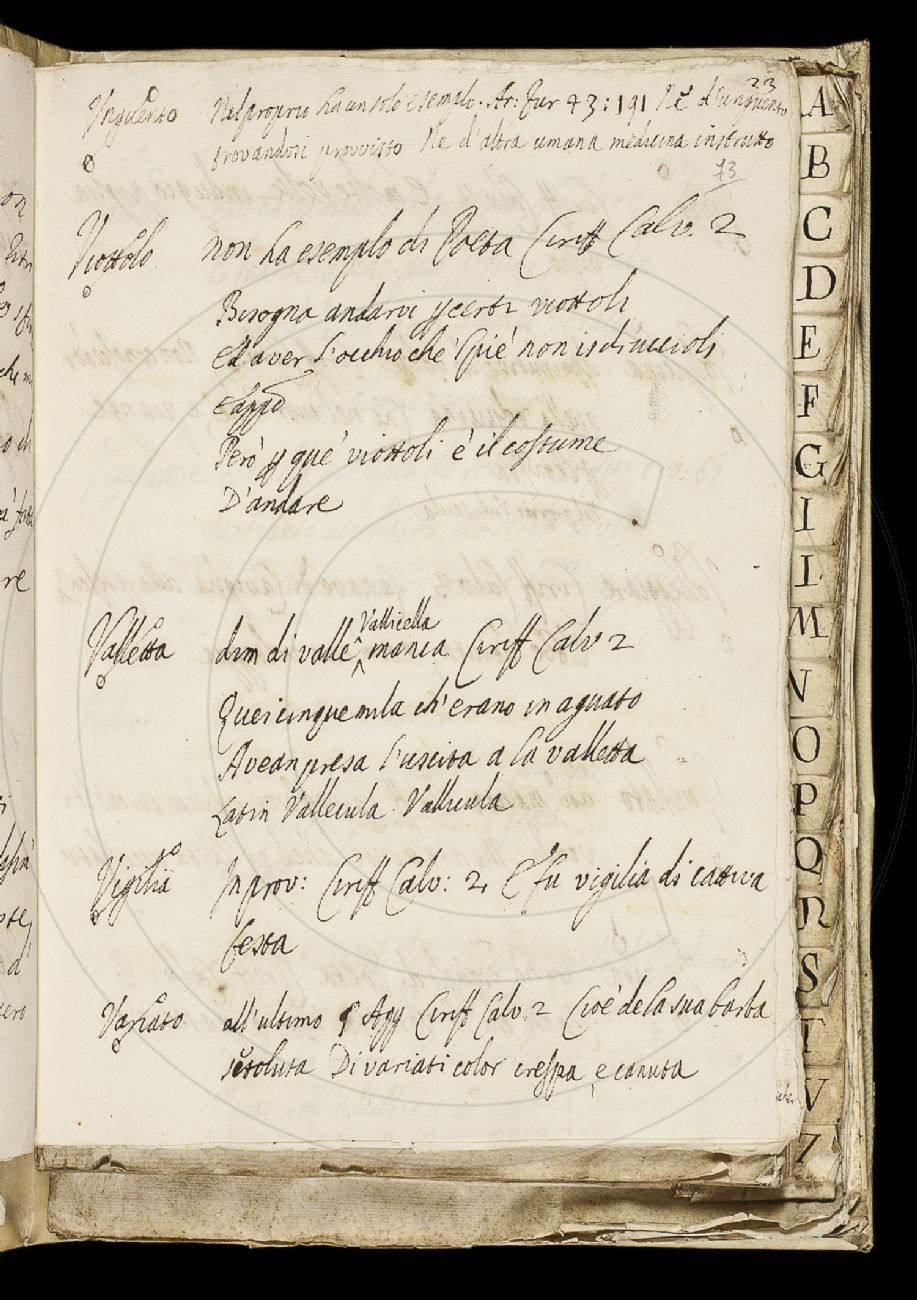 23
Unguento Nel proprio ha un solo esempio. Ar: Fur 43: 191 Ne d'unguento
trovandosi provvisto Ne d'altra umana medicina instrutto
73
Viottolo non ha esempio di Poeta Ciriff Calv. 2
Bisogna andarvi p certi viottoli
Ed aver l'occhio che 'l piè non isdruccioli
e appo
Però p que' viottoli è il costume
D'andare
Valletta dim di valle ^ Vallicella manca Ciriff Calv 2
Quei cinquemila ch'erano in aguato
Avean presa l'uscita a la valletta
Latin Vallecula Vallicula
Vigilia In prov: Ciriff Calv: 2 E fu vigilia di cattiva
festa
Variato all'ultimo § Agg Ciriff Calv. 2 Cioè de la sua barba
setoluta Di variati color crespa, e canuta
A
B
C
D
E
F
G
I
L
M
N
O
P
Q
R
S
T
V
Z